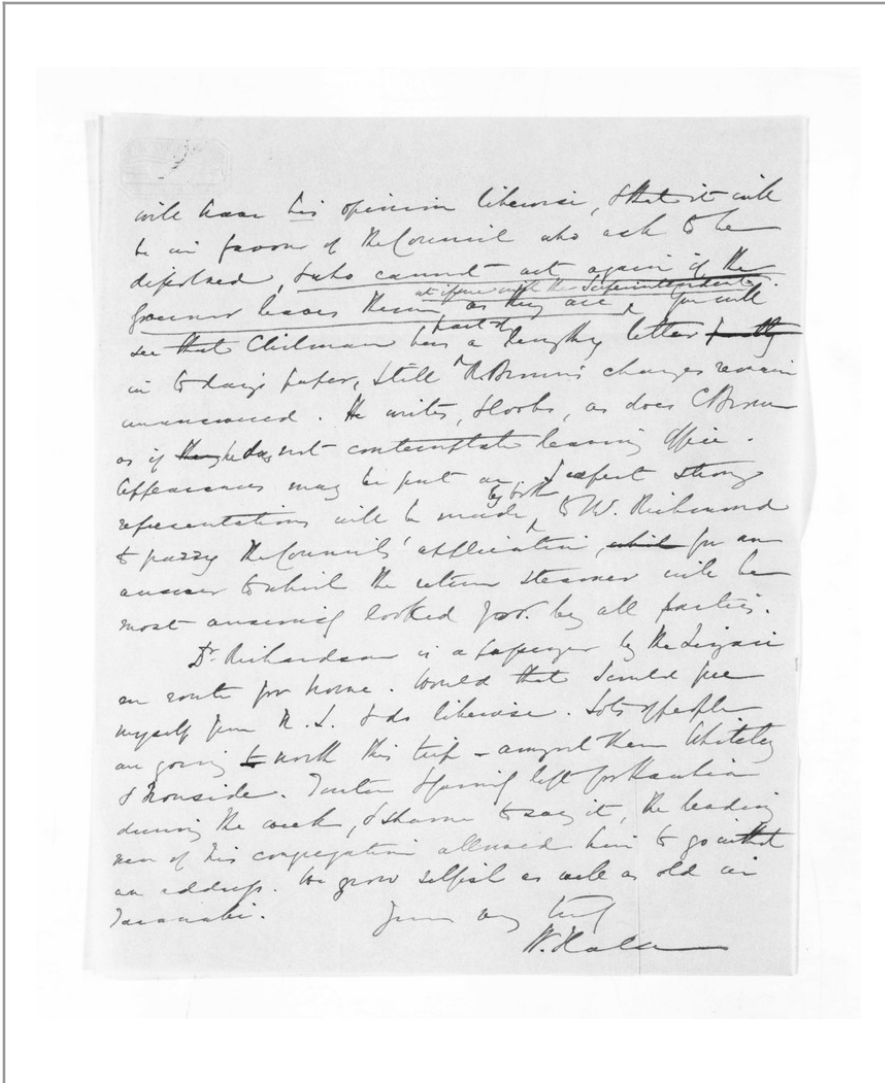 will have his opinion likewise, & that it will
be in favour of the Council who ask to be
dissolved, & who cannot act again if the
Governor leaves them as they are at issue with the Superintendent. You will
see that Chilman has part of a lengthy letter
in to days paper, still Dr Brown's charges remain
unanswered. He writes, & looks, as does C Brown
as if he does not contemplate leaving office.
Appearances may be put on, I expect strong
representations will be made by both to W. Richmond
to parry the Councils' application, for an
answer to which the return steamer will be
most anxiously looked for by all parties.
Dr. Richardson is a passenger by the
en route for home. Would that I could free
myself from N. Z. & do likewise. Lots of people
are going to north this trip - amongst them Whiteley
& Ironside. & family left for
during the week, & shame to say it, the leading
men of his congregation allowed him to go without
an address. We grow selfish as well as old in
Taranaki.
Yours very truly
W. Halse